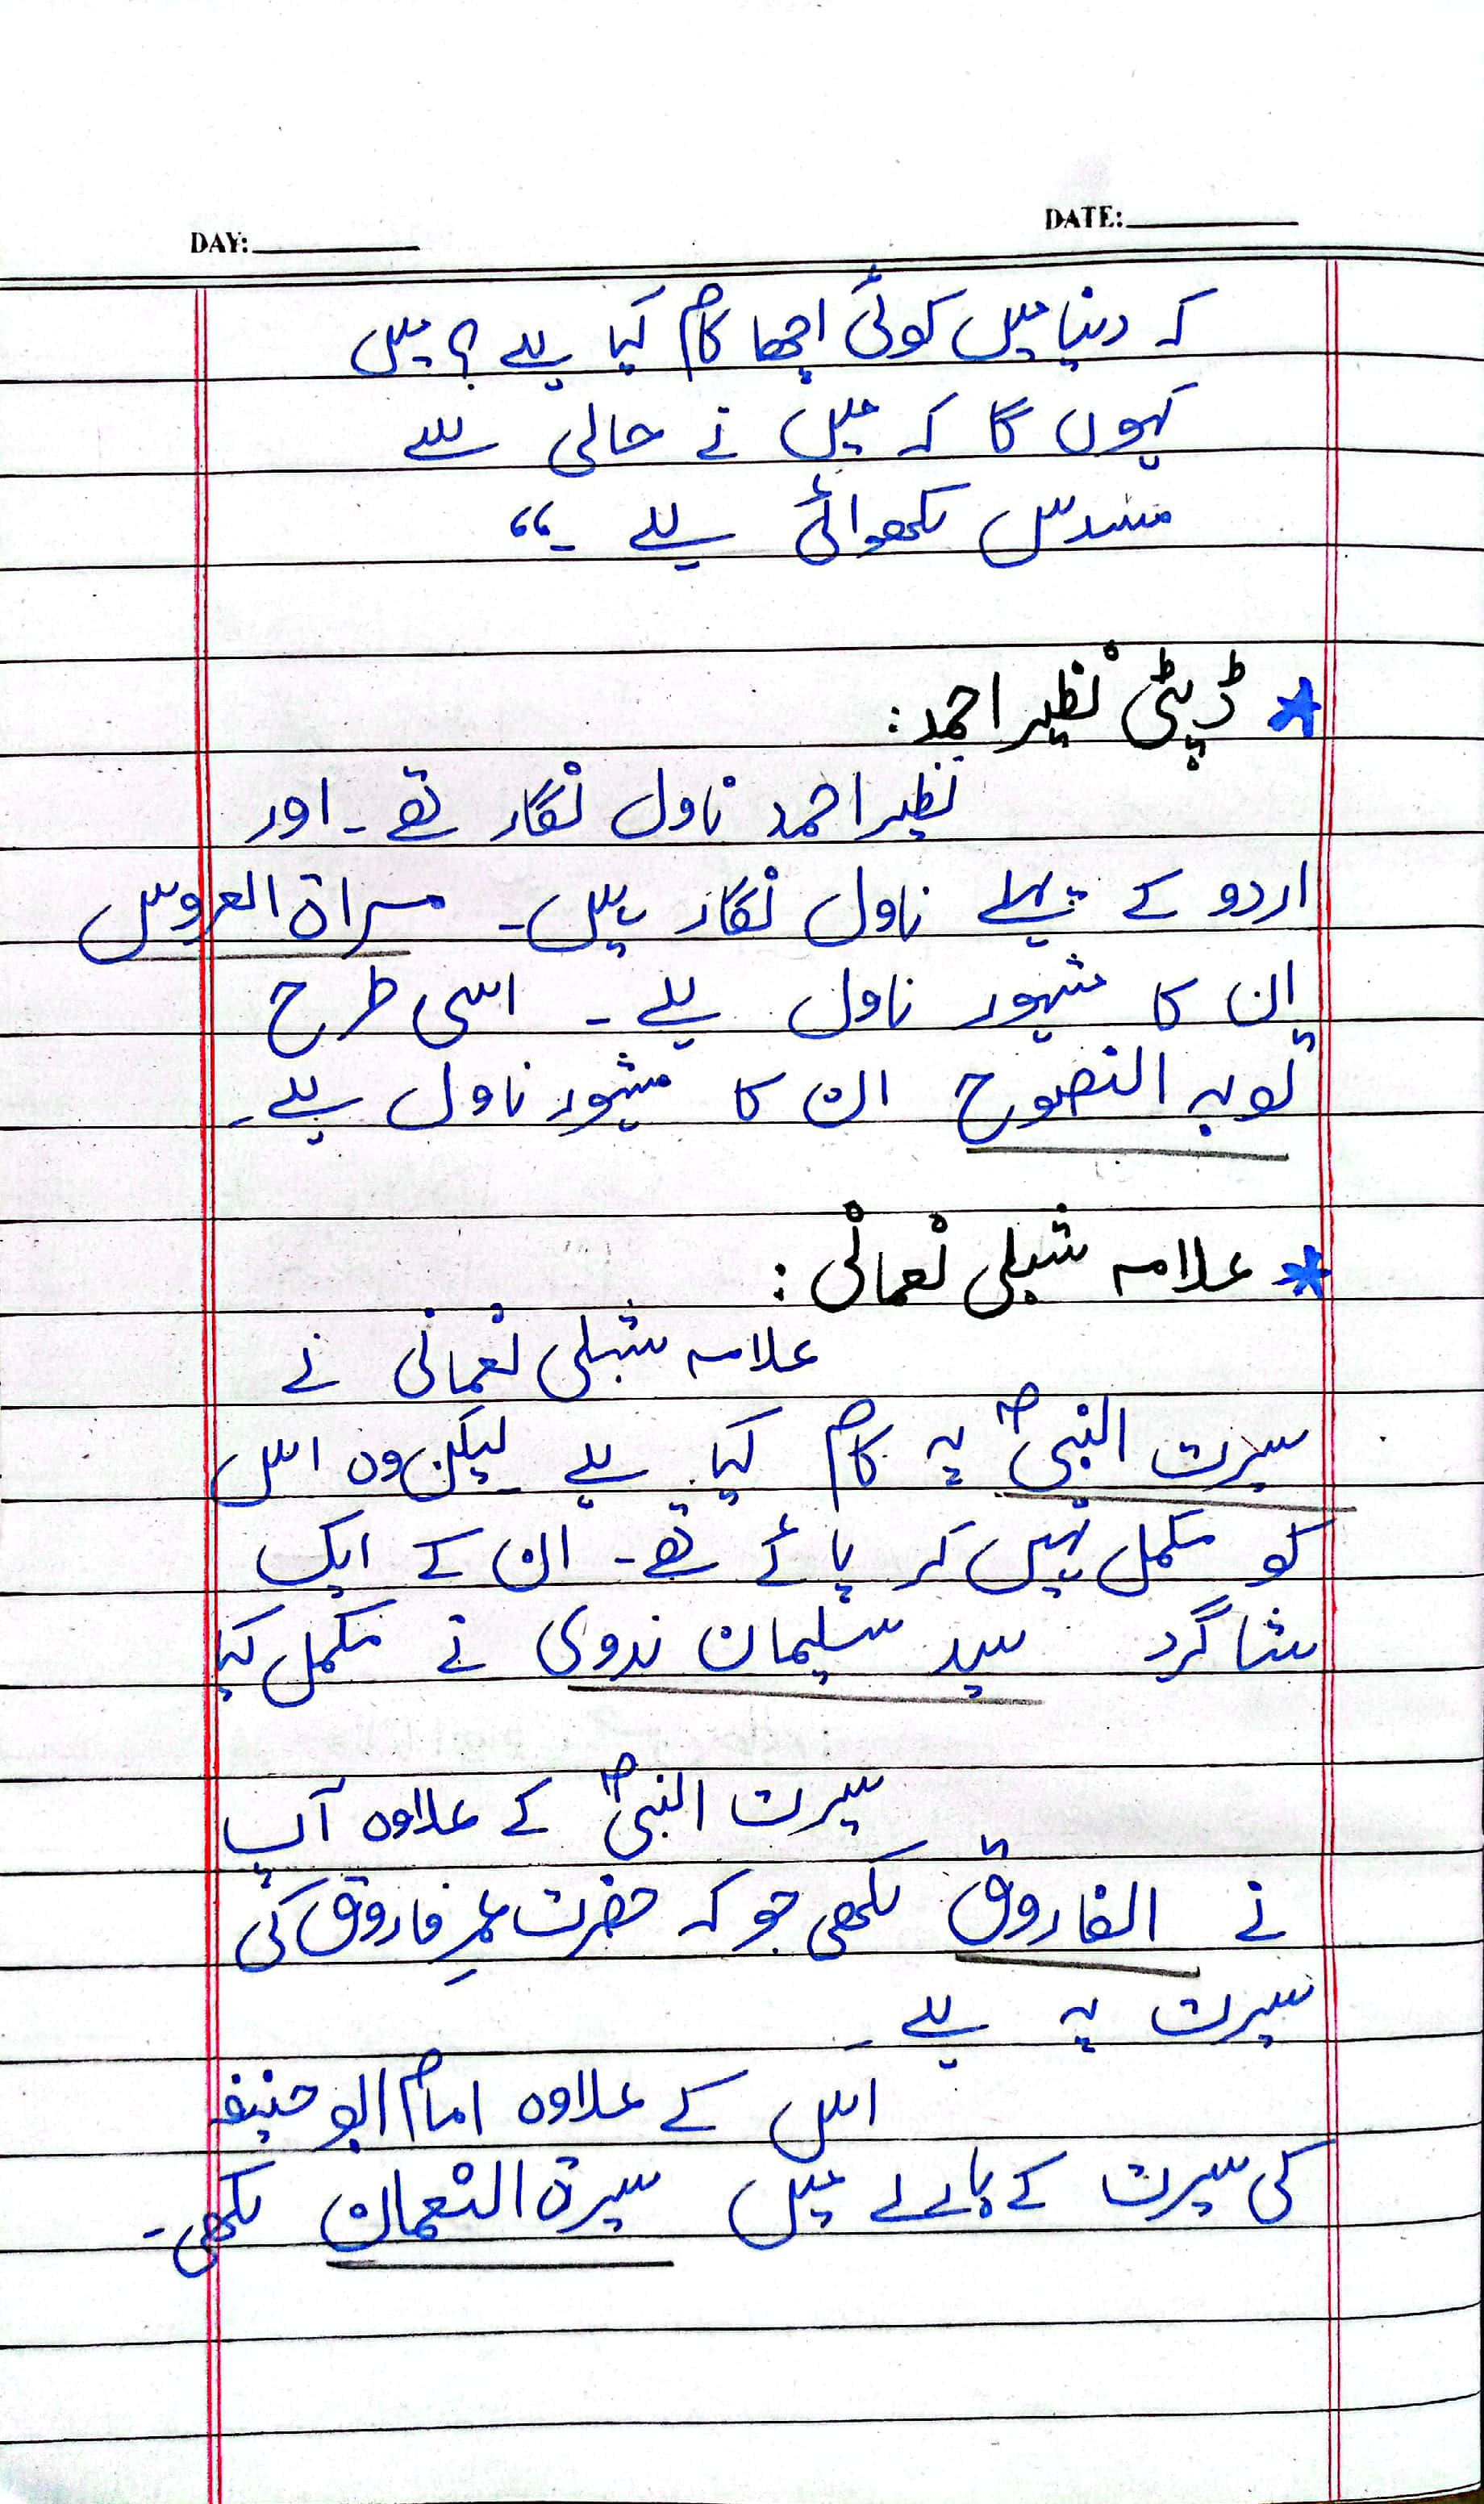 DAY:
DATE:
کہ دنیا میں کوئی اچھا کام کیا ہے؟ میں
کہوں گا کہ میں نے حالی سے
مسدس لکھوائی ہے ۔“
* ڈپٹی نظیر احمد:
نظیر احمد ناول نگار تھے ۔ اور
اردو کے پہلے ناول نگار ہیں۔ مراۃ العروس
ان کا مشہور ناول ہے ۔ اسی طرح
توبہ النصوح ان کا مشہور ناول ہے۔
* علامہ شبلی نعمانی :
علامہ شبلی نعمانی نے
سیرت النبیؐ پہ کام کیا ہے لیکن وہ اس
کو مکمل نہیں کر پائے تھے ۔ ان کے ایک
شاگرد سید سلیمان ندوی نے مکمل کیا
سیرت النبیؐ کے علاوہ آپ
نے الفاروق لکھی جو کہ حضرت عمرِ فاروق کی
سیرت پہ ہے ۔
اس کے علاوہ امام ابو حنیفہ
کی سیرت کے بارے میں سیرۃ النعمان لکھی۔